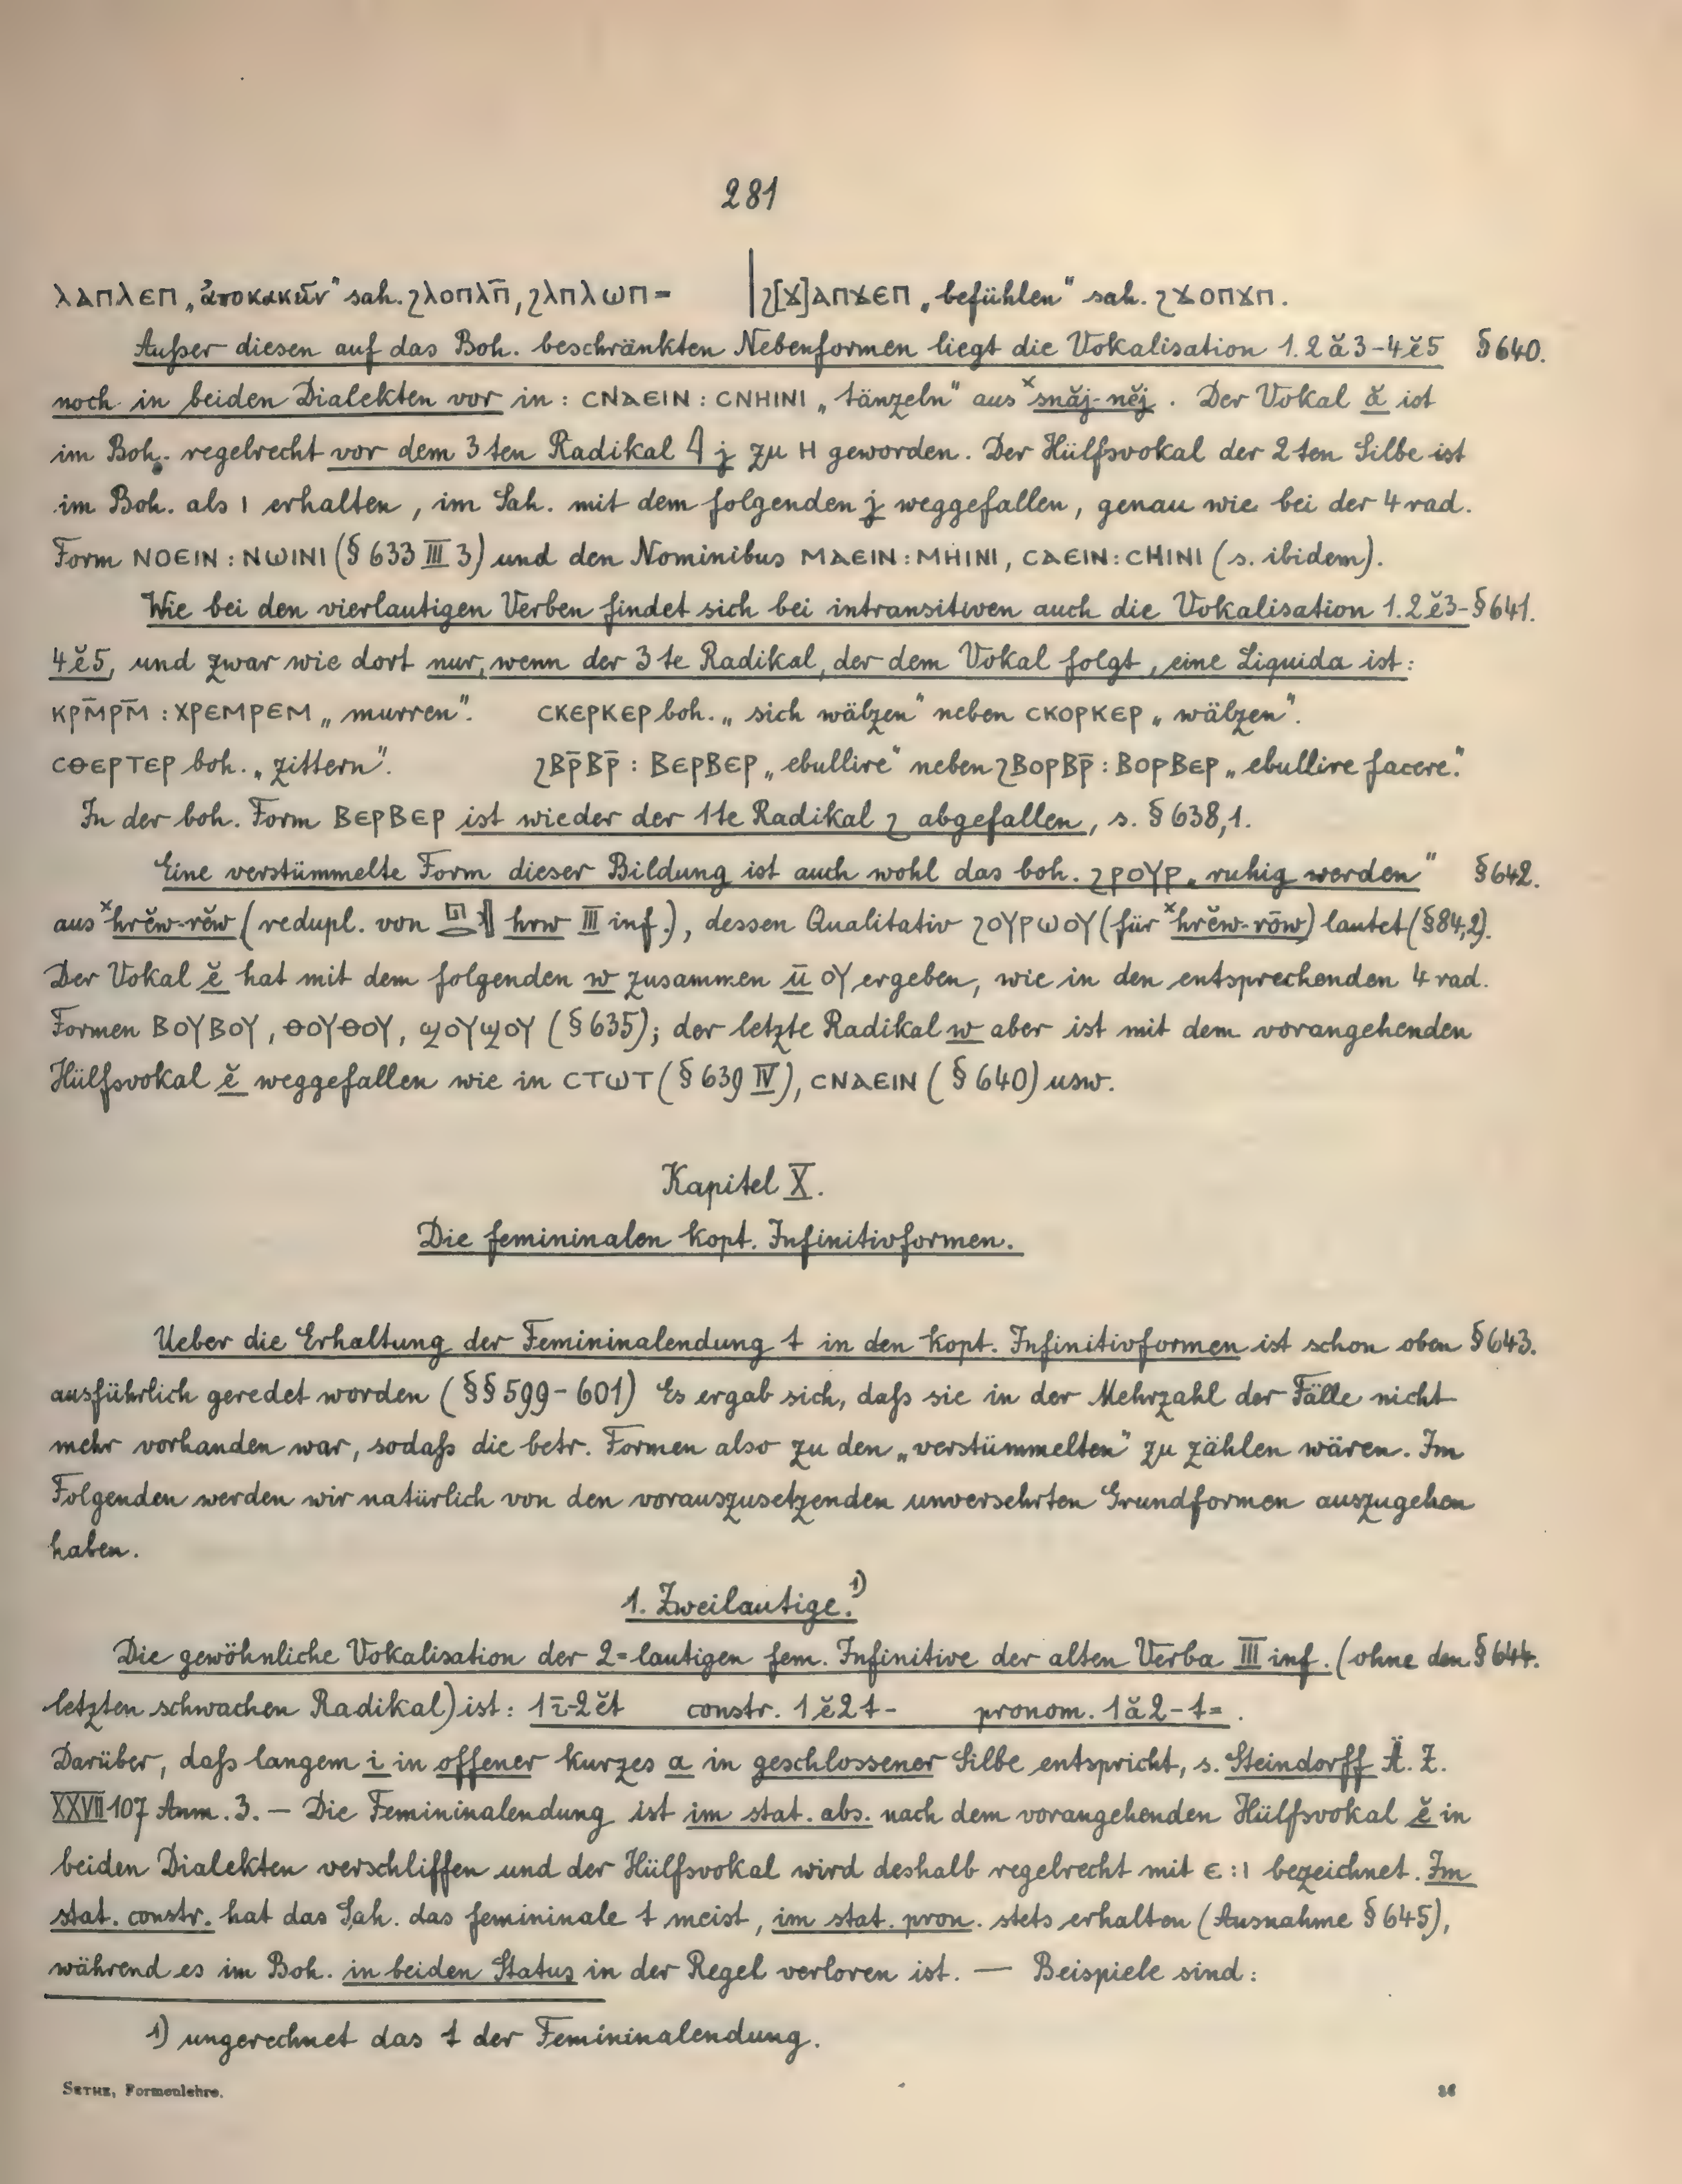 281
ⲗⲁⲡⲗⲉⲡ „ἀποκακεῖν“ sah. ϩⲗⲟⲡⲗⲡ̄, ϩⲗⲡⲗⲱⲡ= | ϩ[ϫ]ⲁⲡϫⲉⲡ „befühlen“ sah. ϩϫⲟⲡϫⲡ.
Außer diesen auf das Boh. beschränkten Nebenformen liegt die Vokalisation 1.2ă3-4ĕ5 §640.
noch in beiden Dialekten vor in: ⲥⲛⲁⲉⲓⲛ : ⲥⲛⲏⲓⲛⲓ „tänzeln“ aus ˣsnăj-nĕj. Der Vokal ă ist
im Boh. regelrecht vor dem 3ten Radikal 𓇋 j zu ⲏ geworden. Der Hülfsvokal der 2ten Silbe ist
im Boh. als ⲓ erhalten, im Sah. mit dem folgenden j weggefallen, genau wie bei der 4rad.
Form ⲛⲟⲉⲓⲛ : ⲛⲱⲓⲛⲓ (§633 III 3) und den Nominibus ⲙⲁⲉⲓⲛ : ⲙⲏⲓⲛⲓ, ⲥⲁⲉⲓⲛ : ⲥⲏⲓⲛⲓ (s. ibidem).
Wie bei den vierlautigen Verben findet sich bei intransitiven auch die Vokalisation 1.2ĕ3- §641.
4ĕ5, und zwar wie dort nur, wenn der 3te Radikal, der dem Vokal folgt, eine Liquida ist:
ⲕⲣⲙ̄ⲣⲙ̄ : ⲭⲣⲉⲙⲣⲉⲙ „murren“. ⲥⲕⲉⲣⲕⲉⲣ boh. „sich wälzen“ neben ⲥⲕⲟⲣⲕⲉⲣ „wälzen“.
ⲥⲑⲉⲣⲧⲉⲣ boh. „zittern“. ϩⲃⲣ̄ⲃⲣ̄ : ⲃⲉⲣⲃⲉⲣ „ebullire“ neben ϩⲃⲟⲣⲃⲣ̄ : ⲃⲟⲣⲃⲉⲣ „ebullire facere“.
In der boh. Form ⲃⲉⲣⲃⲉⲣ ist wieder der 1te Radikal ϩ abgefallen, s. §638,1.
Eine verstümmelte Form dieser Bildung ist auch wohl das boh. ϩⲣⲟⲩⲣ „ruhig werden“ §642.
aus ˣhrĕw-rĕw (redupl. von hrw III inf.), dessen Qualitativ ϩⲟⲩⲣⲱⲟⲩ (für ˣhrĕw-rōw) lautet (§84,2).
Der Vokal ĕ hat mit dem folgenden w zusammen ū ⲟⲩ ergeben, wie in den entsprechenden 4rad.
Formen ⲃⲟⲩⲃⲟⲩ, ⲑⲟⲩⲑⲟⲩ, ϣⲟⲩϣⲟⲩ (§635); der letzte Radikal w aber ist mit dem vorangehenden
Hülfsvokal ĕ weggefallen wie in ⲥⲧⲱⲧ (§639 IV), ⲥⲛⲁⲉⲓⲛ (§640) usw.
Kapitel X.
Die femininalen kopt. Infinitivformen.
Ueber die Erhaltung der Femininalendung t in den kopt. Infinitivformen ist schon oben §643.
ausführlich geredet worden (§§599-601) Es ergab sich, daß sie in der Mehrzahl der Fälle nicht
mehr vorhanden war, sodaß die betr. Formen also zu den „verstümmelten“ zu zählen wären. Im
Folgenden werden wir natürlich von den vorauszusetzenden unversehrten Grundformen auszugehen
haben.
1. Zweilautige.¹⁾
Die gewöhnliche Vokalisation der 2=lautigen fem. Infinitive der alten Verba III inf. (ohne den §644.
letzten schwachen Radikal) ist: 1ī-2ĕt constr. 1ĕ2t- pronom. 1ă2-t=.
Darüber, daß langem i in offener kurzes a in geschlossener Silbe entspricht, s. Steindorff Ä. Z.
XXVII 107 Anm. 3. — Die Femininalendung ist im stat. abs. nach dem vorangehenden Hülfsvokal ĕ in
beiden Dialekten verschliffen und der Hülfsvokal wird deshalb regelrecht mit ⲉ : ⲓ bezeichnet. Im
stat. constr. hat das Sah. das femininale t meist, im stat. pron. stets erhalten (Ausnahme §645),
während es im Boh. in beiden Status in der Regel verloren ist. — Beispiele sind:
1) ungerechnet das t der Femininalendung.
SETHE, Formenlehre. 36